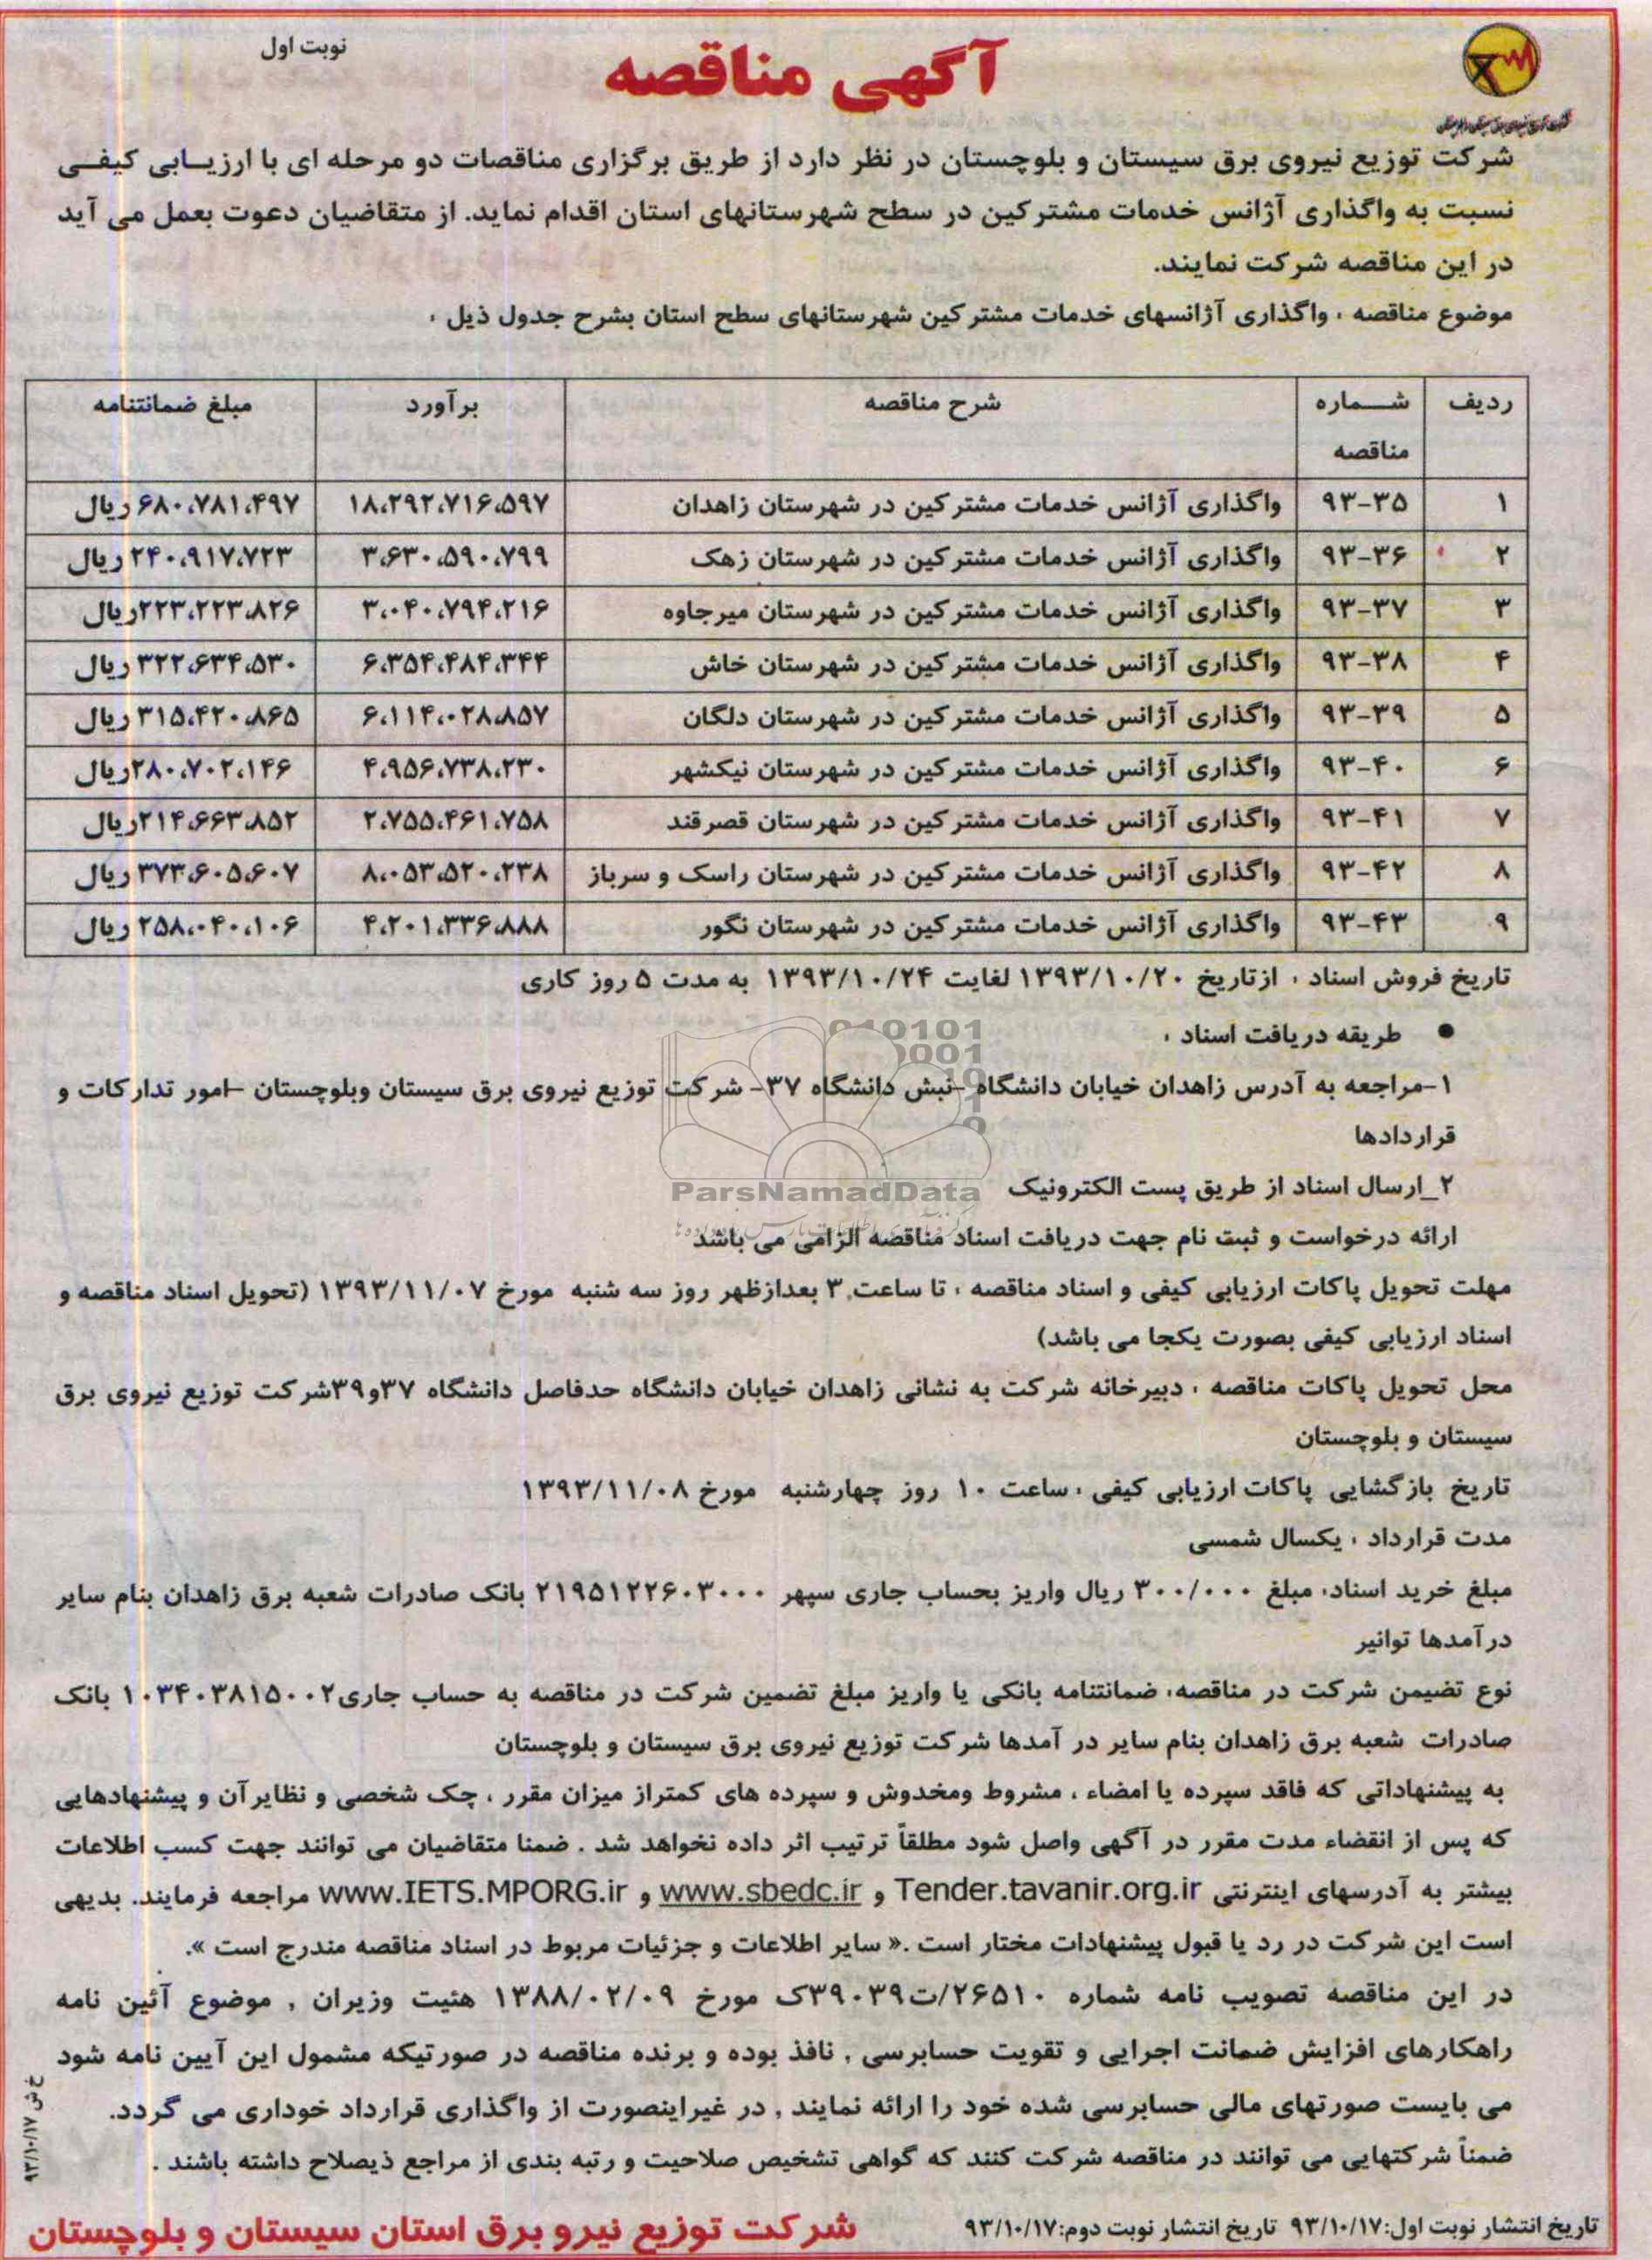 نوبت اول
آگهی مناقصه
شرکت توزیع نیروی برق سیستان و بلوچستان در نظر دارد از طریق برگزاری مناقصات دو مرحله ای با ارزیابی کیفی
نسبت به واگذاری آژانس خدمات مشترکین در سطح شهرستانهای استان اقدام نماید. از متقاضیان دعوت بعمل می آید
در این مناقصه شرکت نمایند.
موضوع مناقصه : واگذاری آژانسهای خدمات مشترکین شهرستانهای سطح استان بشرح جدول ذیل :
ردیف شماره مناقصه شرح مناقصه برآورد مبلغ ضمانتنامه
۱ ۹۳-۳۵ واگذاری آژانس خدمات مشترکین در شهرستان زاهدان ۱۸،۲۹۲،۷۱۶،۵۹۷ ۶۸۰،۷۸۱،۴۹۷ ریال
۲ ۹۳-۳۶ واگذاری آژانس خدمات مشترکین در شهرستان زهک ۳،۶۳۰،۵۹۰،۷۹۹ ۲۴۰،۹۱۷،۷۲۳ ریال
۳ ۹۳-۳۷ واگذاری آژانس خدمات مشترکین در شهرستان میرجاوه ۳،۰۴۰،۷۹۴،۲۱۶ ۲۲۳،۲۲۳،۸۲۶ریال
۴ ۹۳-۳۸ واگذاری آژانس خدمات مشترکین در شهرستان خاش ۶،۳۵۴،۴۸۴،۳۴۴ ۳۲۲،۶۳۴،۵۳۰ ریال
۵ ۹۳-۳۹ واگذاری آژانس خدمات مشترکین در شهرستان دلگان ۶،۱۱۴،۰۲۸،۸۵۷ ۳۱۵،۴۲۰،۸۶۵ ریال
۶ ۹۳-۴۰ واگذاری آژانس خدمات مشترکین در شهرستان نیکشهر ۴،۹۵۶،۷۳۸،۲۳۰ ۲۸۰،۷۰۲،۱۴۶ریال
۷ ۹۳-۴۱ واگذاری آژانس خدمات مشترکین در شهرستان قصرقند ۲،۷۵۵،۴۶۱،۷۵۸ ۲۱۴،۶۶۳،۸۵۲ریال
۸ ۹۳-۴۲ واگذاری آژانس خدمات مشترکین در شهرستان راسک و سرباز ۸،۰۵۳،۵۲۰،۲۳۸ ۳۷۳،۶۰۵،۶۰۷ ریال
۹ ۹۳-۴۳ واگذاری آژانس خدمات مشترکین در شهرستان نگور ۴،۲۰۱،۳۳۶،۸۸۸ ۲۵۸،۰۴۰،۱۰۶ ریال
تاریخ فروش اسناد : ازتاریخ ۱۳۹۳/۱۰/۲۰ لغایت ۱۳۹۳/۱۰/۲۴ به مدت ۵ روز کاری
• طریقه دریافت اسناد :
۱-مراجعه به آدرس زاهدان خیابان دانشگاه -نبش دانشگاه ۳۷- شرکت توزیع نیروی برق سیستان وبلوچستان -امور تدارکات و
قراردادها
۲_ارسال اسناد از طریق پست الکترونیک
ParsNamadData
ارائه درخواست و ثبت نام جهت دریافت اسناد مناقصه الزامی می باشد
مهلت تحویل پاکات ارزیابی کیفی و اسناد مناقصه : تا ساعت ۳ بعدازظهر روز سه شنبه مورخ ۱۳۹۳/۱۱/۰۷ (تحویل اسناد مناقصه و
اسناد ارزیابی کیفی بصورت یکجا می باشد)
محل تحویل پاکات مناقصه : دبیرخانه شرکت به نشانی زاهدان خیابان دانشگاه حدفاصل دانشگاه ۳۷و۳۹شرکت توزیع نیروی برق
سیستان و بلوچستان
تاریخ بازگشایی پاکات ارزیابی کیفی : ساعت ۱۰ روز چهارشنبه مورخ ۱۳۹۳/۱۱/۰۸
مدت قرارداد : یکسال شمسی
مبلغ خرید اسناد: مبلغ ۳۰۰/۰۰۰ ریال واریز بحساب جاری سپهر ۲۱۹۵۱۲۲۶۰۳۰۰۰ بانک صادرات شعبه برق زاهدان بنام سایر
درآمدها توانیر
نوع تضیمن شرکت در مناقصه: ضمانتنامه بانکی یا واریز مبلغ تضمین شرکت در مناقصه به حساب جاری۱۰۳۴۰۳۸۱۵۰۰۲ بانک
صادرات شعبه برق زاهدان بنام سایر در آمدها شرکت توزیع نیروی برق سیستان و بلوچستان
به پیشنهاداتی که فاقد سپرده یا امضاء ، مشروط ومخدوش و سپرده های کمتراز میزان مقرر ، چک شخصی و نظایر آن و پیشنهادهایی
که پس از انقضاء مدت مقرر در آگهی واصل شود مطلقاً ترتیب اثر داده نخواهد شد . ضمنا متقاضیان می توانند جهت کسب اطلاعات
بیشتر به آدرسهای اینترنتی Tender.tavanir.org.ir و www.sbedc.ir و www.IETS.MPORG.ir مراجعه فرمایند. بدیهی
است این شرکت در رد یا قبول پیشنهادات مختار است .« سایر اطلاعات و جزئیات مربوط در اسناد مناقصه مندرج است ».
در این مناقصه تصویب نامه شماره ۲۶۵۱۰/ت۳۹۰۳۹ک مورخ ۱۳۸۸/۰۲/۰۹ هئیت وزیران , موضوع آئین نامه
راهکارهای افزایش ضمانت اجرایی و تقویت حسابرسی , نافذ بوده و برنده مناقصه در صورتیکه مشمول این آیین نامه شود
می بایست صورتهای مالی حسابرسی شده خود را ارائه نمایند , در غیراینصورت از واگذاری قرارداد خوداری می گردد.
ضمناً شرکتهایی می توانند در مناقصه شرکت کنند که گواهی تشخیص صلاحیت و رتبه بندی از مراجع ذیصلاح داشته باشند .
تاریخ انتشار نوبت اول:۹۳/۱۰/۱۷ تاریخ انتشار نوبت دوم:۹۳/۱۰/۱۷
شرکت توزیع نیرو برق استان سیستان و بلوچستان